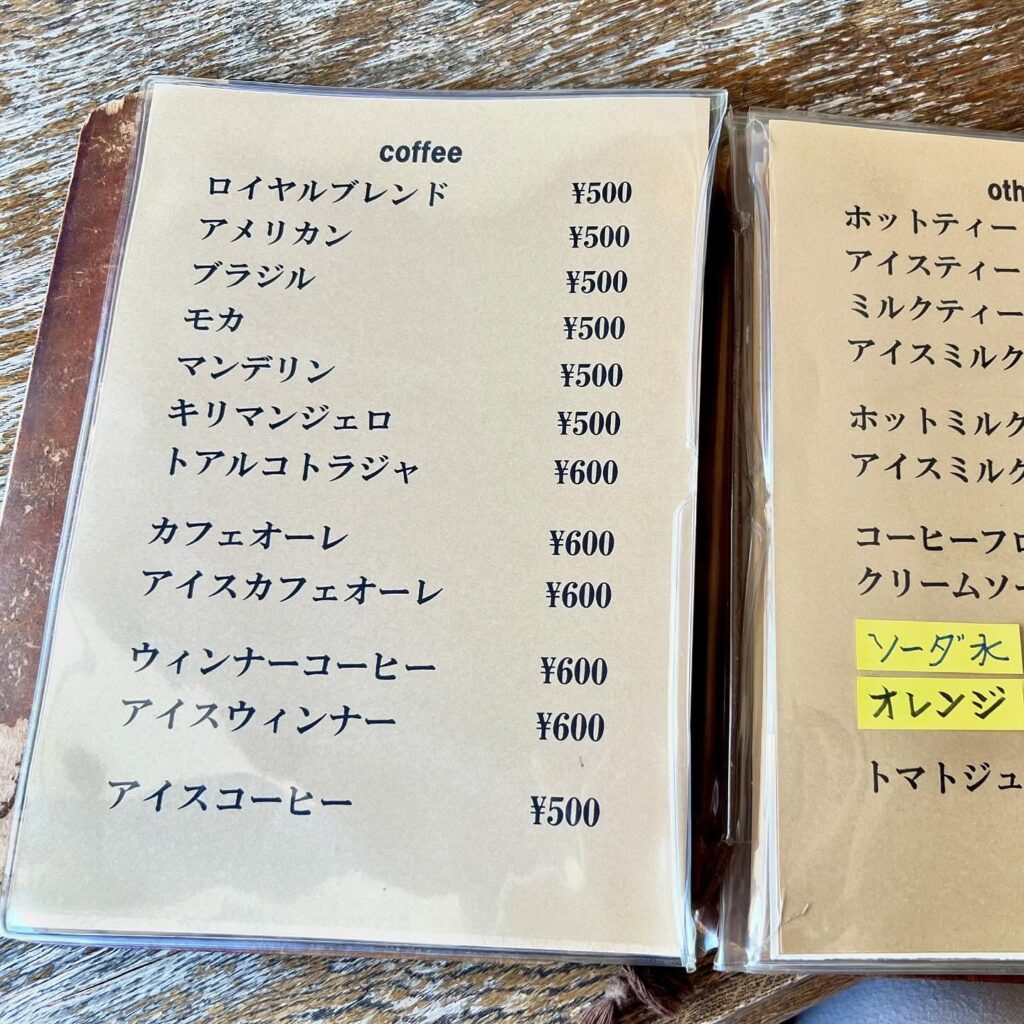 coffee
ロイヤルブレンド ¥500
アメリカン ¥500
ブラジル ¥500
モカ ¥500
マンデリン ¥500
キリマンジェロ ¥500
トアルコトラジャ ¥600
カフェオーレ ¥600
アイスカフェオーレ ¥600
ウィンナーコーヒー ¥600
アイスウィンナー ¥600
アイスコーヒー ¥500
oth
ホットティー
アイスティー
ミルクティー
アイスミルク
ホットミルク
アイスミルク
コーヒーフロ
クリームソー
ソーダ水
オレンジ
トマトジュ